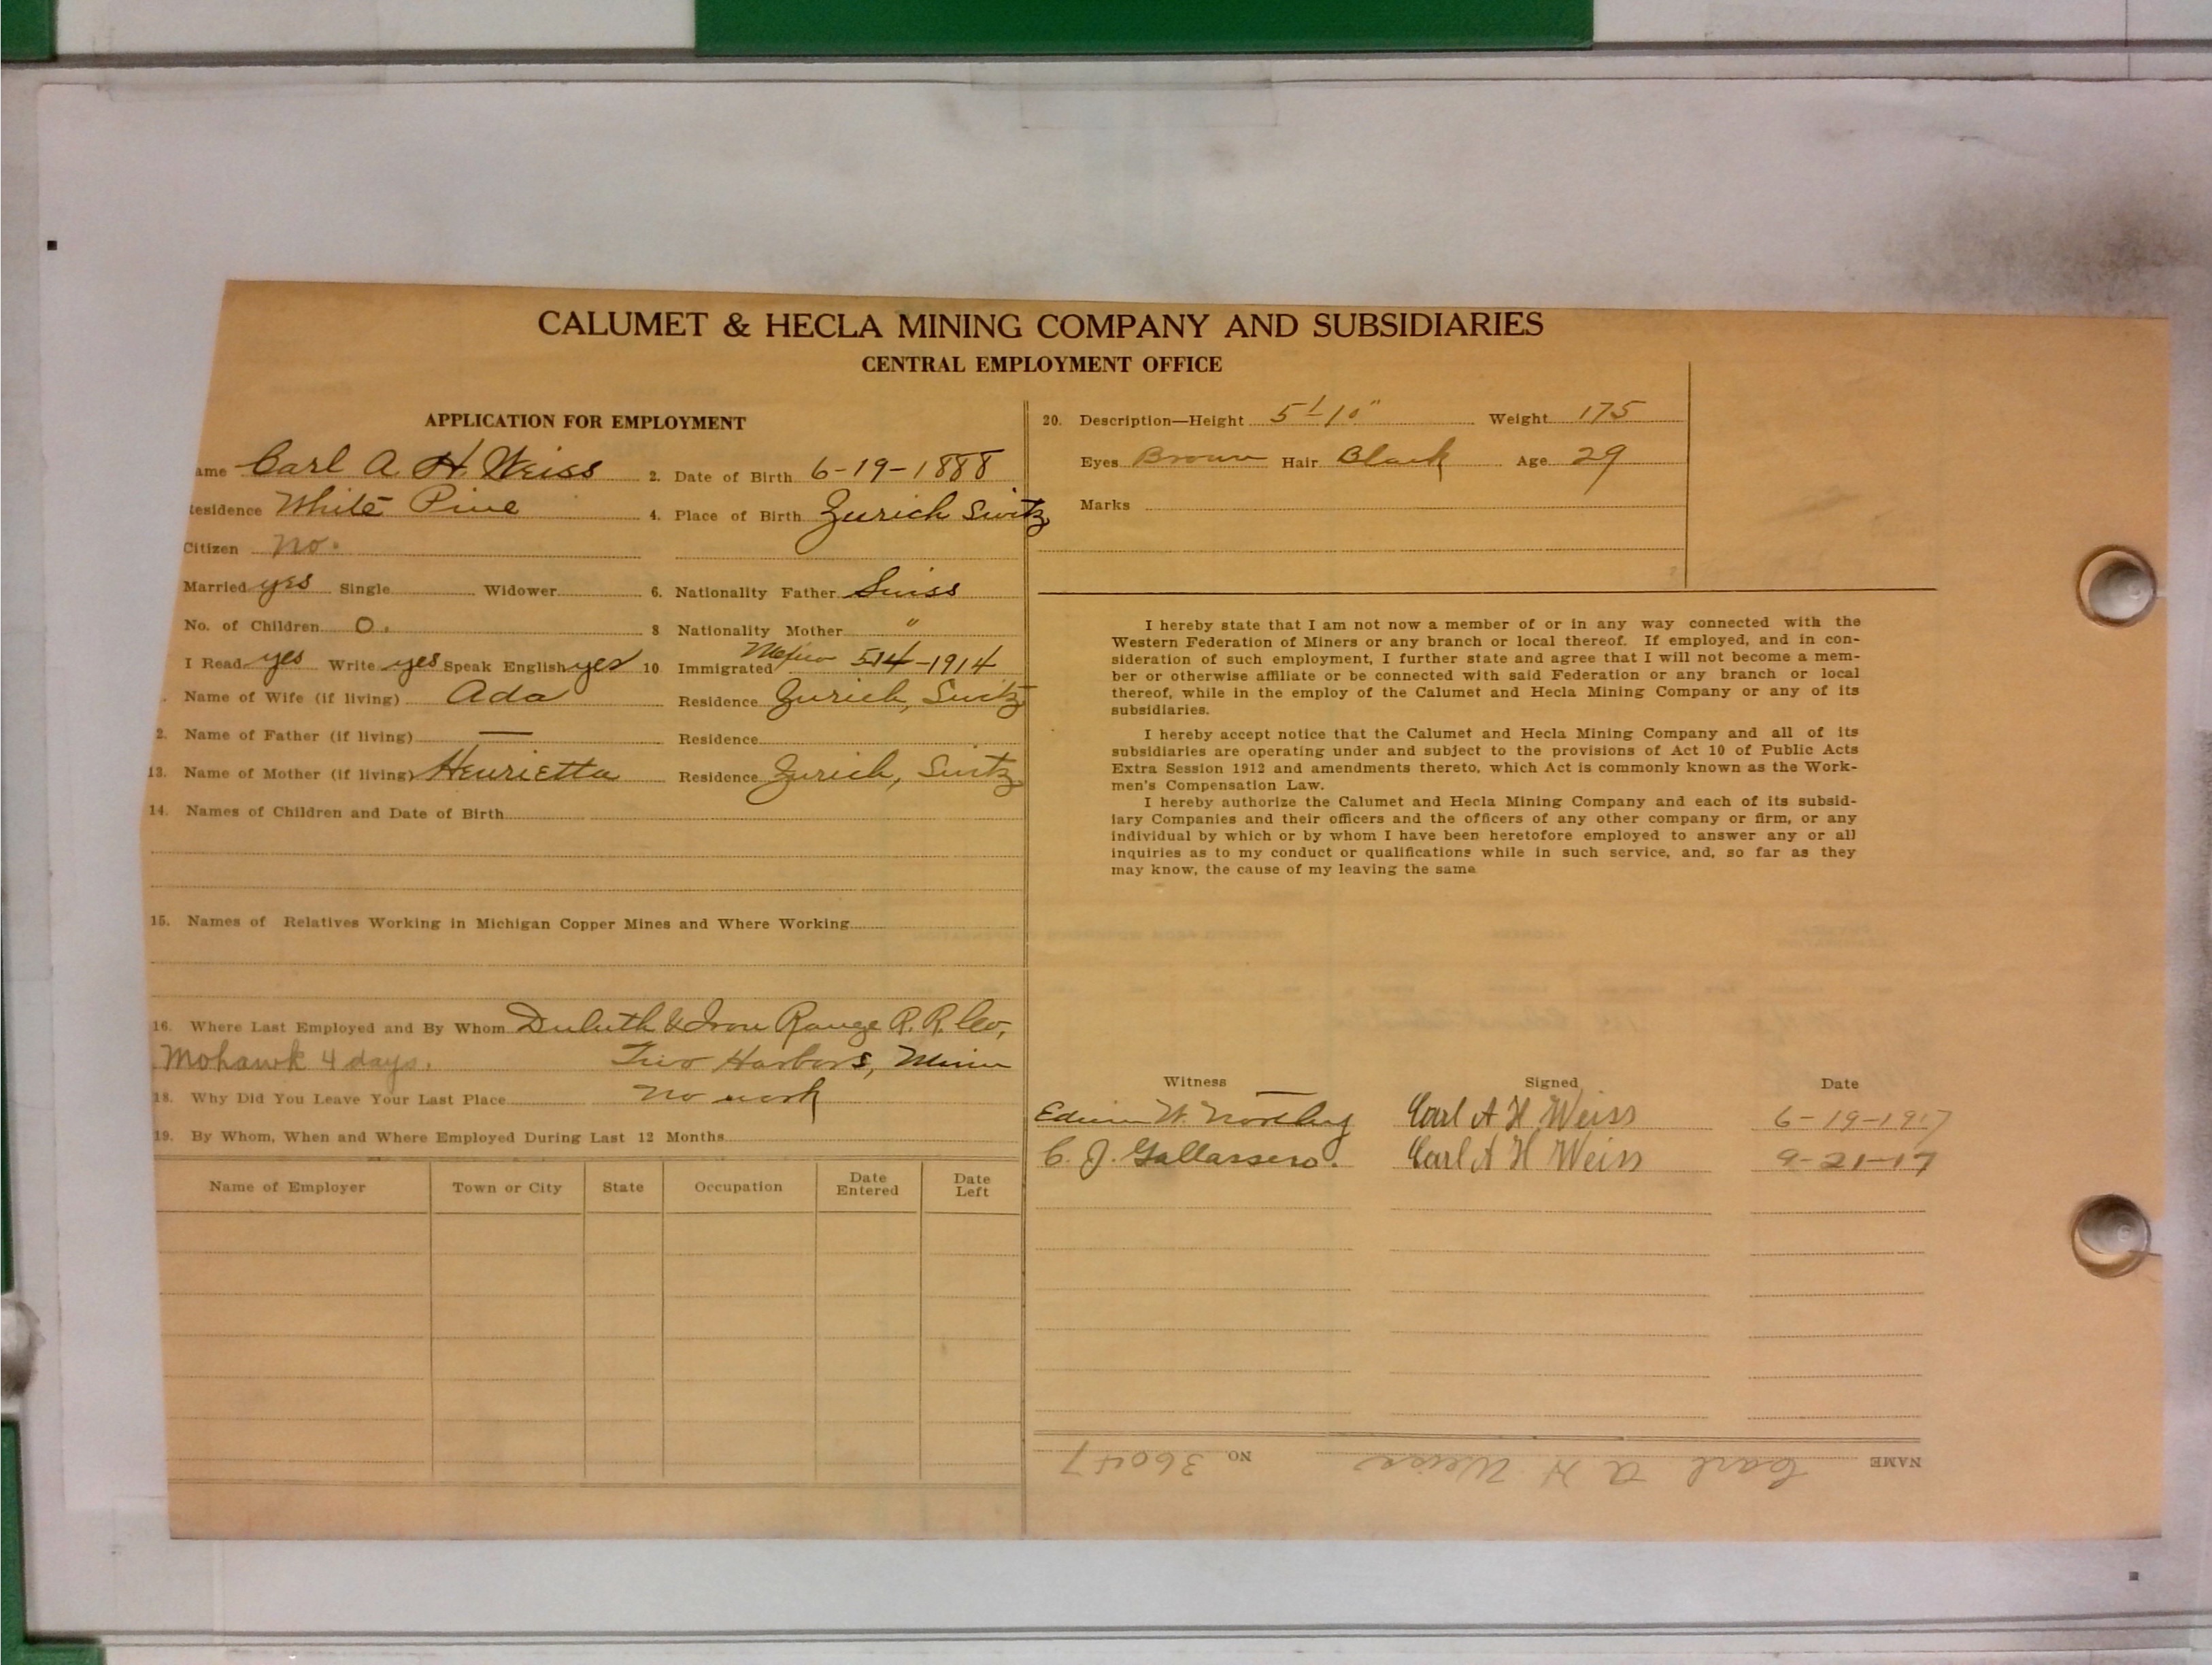 CALUMET & HECLA MINING COMPANY AND SUBSIDIARIES
CENTRAL EMPLOYMENT OFFICE
APPLICATION FOR EMPLOYMENT
ame Carl A H Weiss 2. Date of Birth 6-19-1888
esidence White Pine 4. Place of Birth Zurich Switz
Citizen no.
Married yes Single Widower 6. Nationality Father Swiss
No. of Children 0. 8 Nationality Mother "
I Read yes Write yes Speak English yes 10 Immigrated Mexico 5-14-1914
Name of Wife (if living) Ada Residence Zurich, Switz
2. Name of Father (if living) — Residence
13. Name of Mother (if living) Henrietta Residence Zurich, Switz
14. Names of Children and Date of Birth
15. Names of Relatives Working in Michigan Copper Mines and Where Working
16. Where Last Employed and By Whom Duluth & Iron Range R. R. Co,
Mohawk 4 days. Two Harbors, Minn
18. Why Did You Leave Your Last Place no work
19. By Whom, When and Where Employed During Last 12 Months
Name of Employer Town or City State Occupation Date Entered Date Left
20. Description—Height 5'-10" Weight 175
Eyes Brown Hair Black Age 29
Marks
I hereby state that I am not now a member of or in any way connected with the
Western Federation of Miners or any branch or local thereof. If employed, and in con-
sideration of such employment, I further state and agree that I will not become a mem-
ber or otherwise affiliate or be connected with said Federation or any branch or local
thereof, while in the employ of the Calumet and Hecla Mining Company or any of its
subsidiaries.
I hereby accept notice that the Calumet and Hecla Mining Company and all of its
subsidiaries are operating under and subject to the provisions of Act 10 of Public Acts
Extra Session 1912 and amendments thereto, which Act is commonly known as the Work-
men's Compensation Law.
I hereby authorize the Calumet and Hecla Mining Company and each of its subsid-
iary Companies and their officers and the officers of any other company or firm, or any
individual by which or by whom I have been heretofore employed to answer any or all
inquiries as to my conduct or qualifications while in such service, and, so far as they
may know, the cause of my leaving the same
Witness Signed Date
Edwin W. Northey Carl A H Weiss 6-19-1917
C. J. Gallassero. Carl A H Weiss 9-21-17
NAME Carl A H Weiss NO 36047